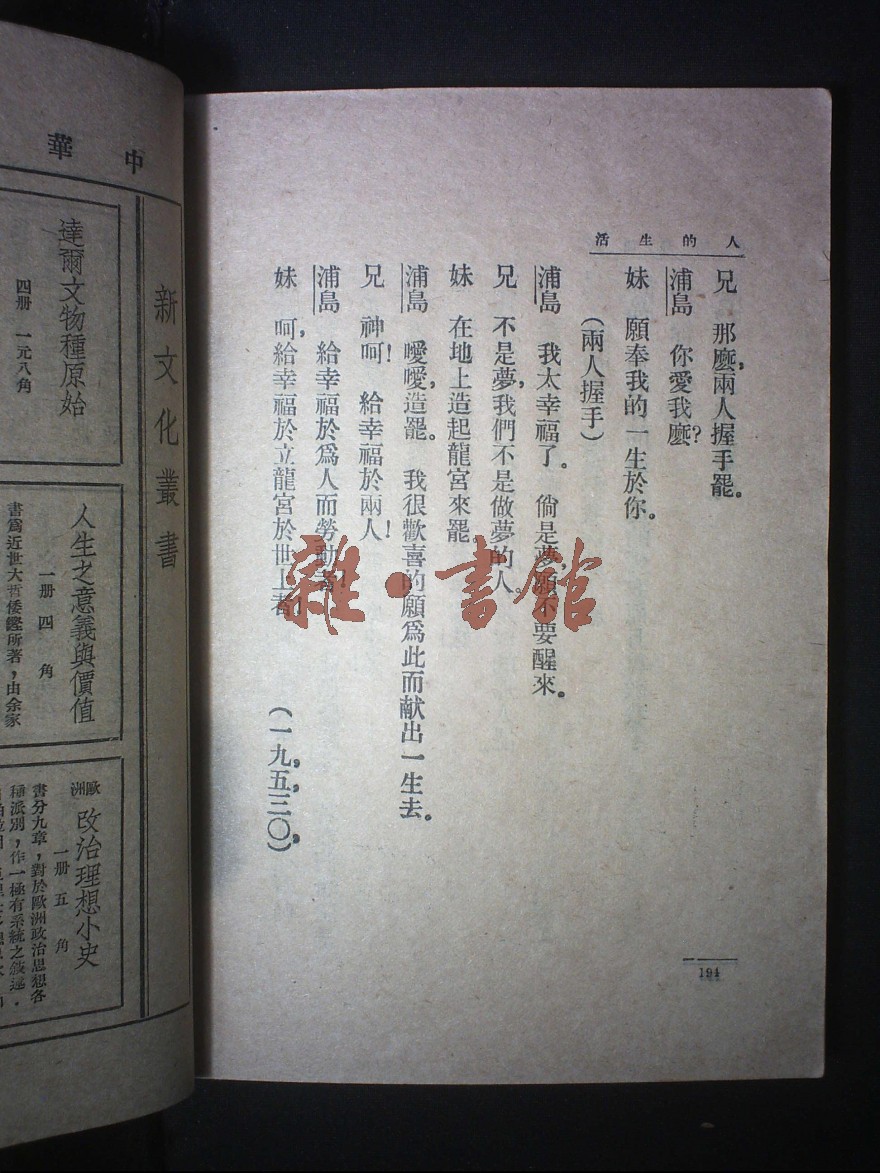 人的生活
兄　那麼，兩人握手罷。
浦島　你愛我麼？
妹　願奉我的一生於你。
（兩人握手）
浦島　我太幸福了。　倘是夢，願不要醒來。
兄　不是夢，我們不是做夢的人。
妹　在地上造起龍宮來罷。
浦島　噯噯，造罷。　我很歡喜的願爲此而献出一生去。
兄　神呵！　給幸福於兩人！
浦島　給幸福於爲人而勞動者！
妹　呵，給幸福於立龍宮於世上者！
（一九，五，三〇，）
194
雜·書館
中華
新文化叢書
達爾文物種原始
四册　一元八角
人生之意義與價值
一册　四角
書爲近世大哲倭鏗所著，由余家
歐洲
政治理想小史
一册　五角
書分九章，對於歐洲政治思想各
種派別，作一極有系統之敍述，